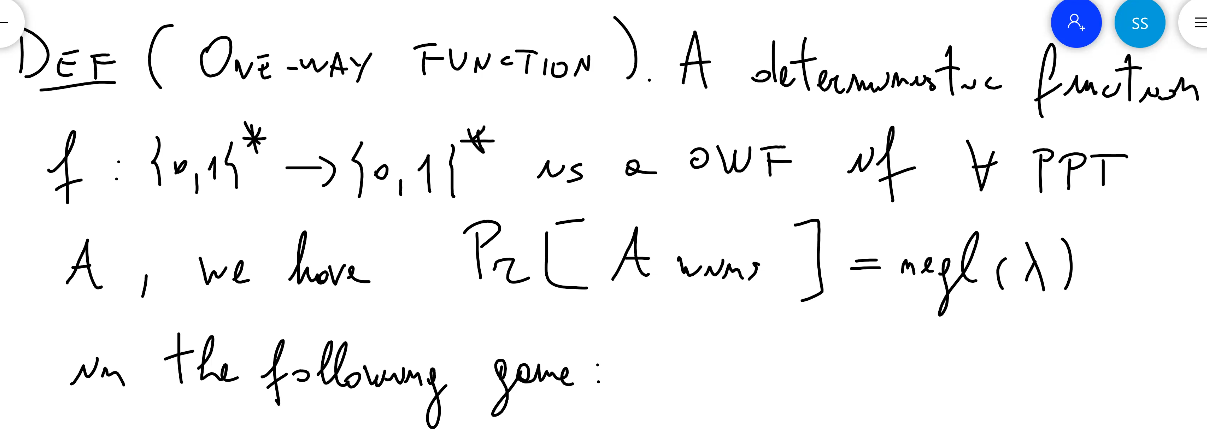 DEF (ONE-WAY FUNCTION). A deterministic function
f : {0,1}* → {0,1}* is a OWF if ∀ PPT
A, we have Pr[A wins] = negl(λ)
in the following game:
SS